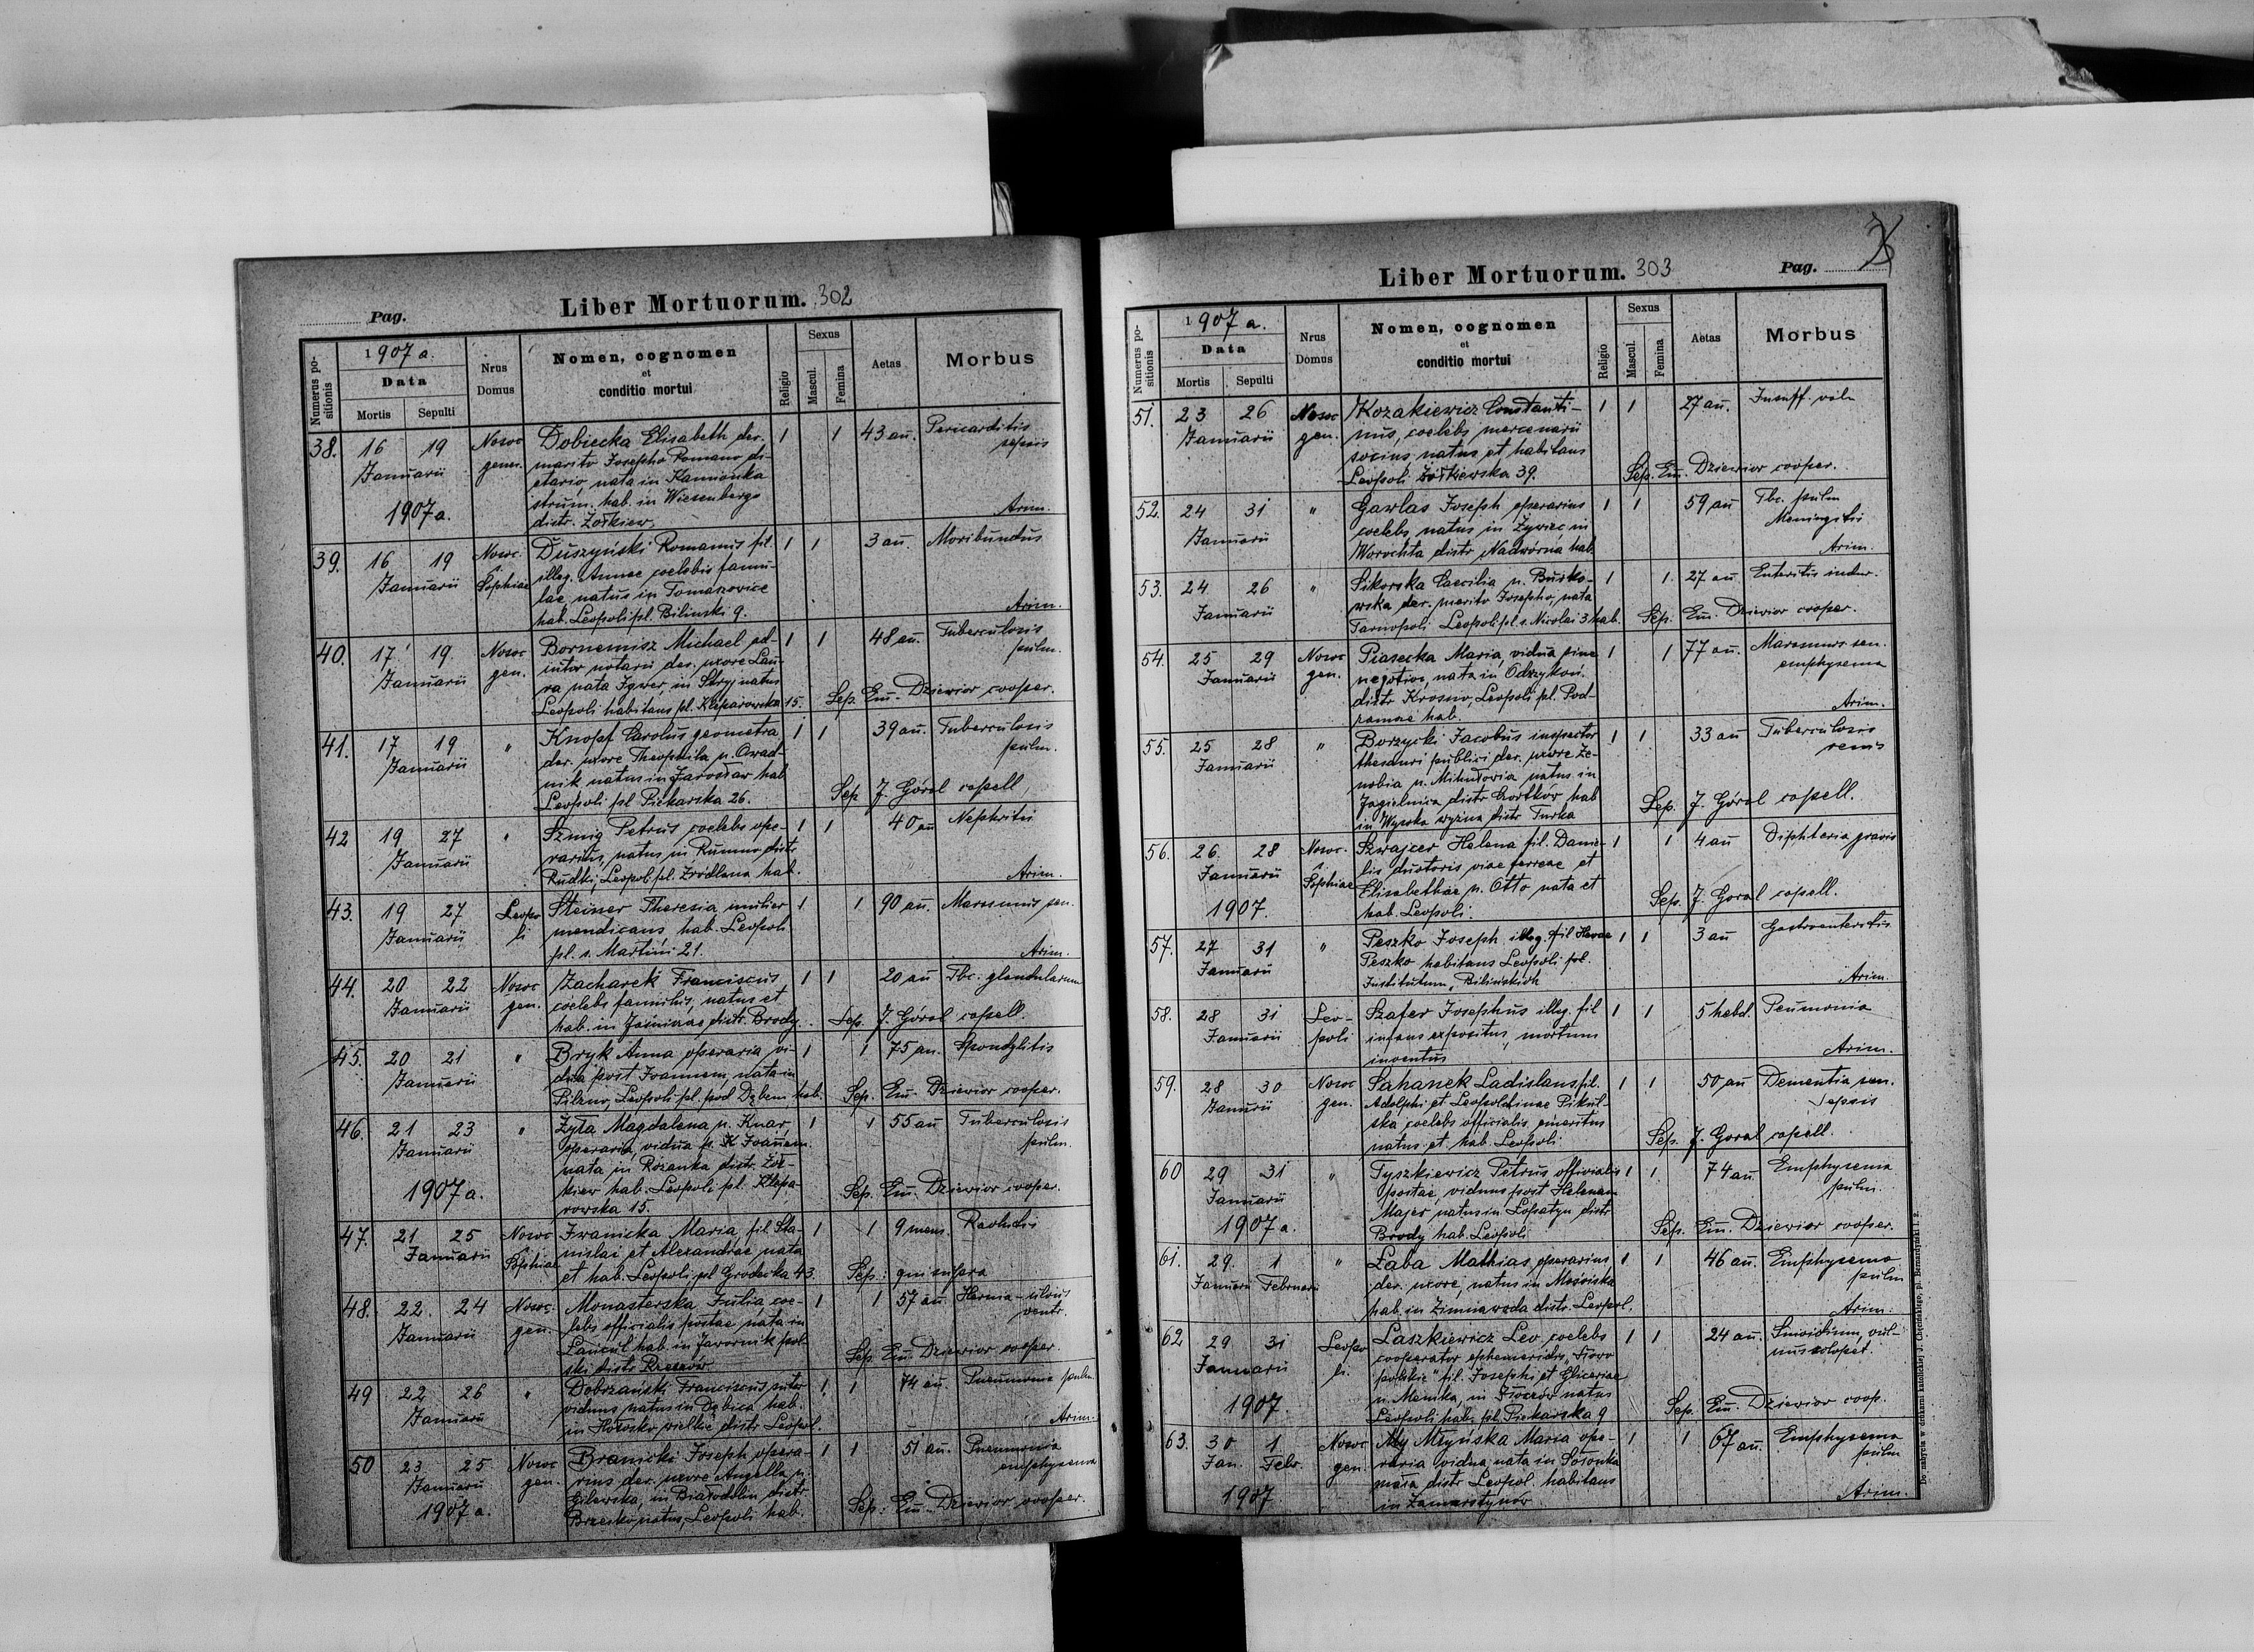 Pag.
Liber Mortuorum. 302
Numerus positionis
1907 a.
Data
Mortis Sepulti
Nrus Domus
Nomen, cognomen
et
conditio mortui
Religio
Sexus
Mascul. Femina
Aetas
Morbus
38. 16 19 Nosoc Dobiecka Elisabeth der. 1 1 43 an. Pericarditis
Januarii gener. marito Josepho Romano di- sepsis
etario, nata in Kamionka
1907 a. strum. hab. in Wiesenberge
distr. Żołkiew. Arim.
39. 16 19 Nosoc. Duszyński Romanus fil. 1 1 3 an. Moribundus
Januarii Sophiae illeg. Annae coelebis famu-
lae natus in Tomanowice
hab. Leopoli pl. Bilinski 9. Arim.
40. 17 19 Nosoc Bornemisz Michael ad- 1 1 48 an. Tuberculosis
Januarii gen. inter notarii der. uxore Lau- pulm.
ra nata Igwer, in Stryj natus
Leopoli habitans pl. Kleparowska 15. Sep. Em. Dziewior cooper.
41. 17 19 " Knopf Carolus geometra 1 1 39 an. Tuberculosis
Januarii der. uxore Theophila n. Osad- pulm.
nik natus in Jarosław hab
Leopoli pl Piekarska 26. Sep J. Góral capell,
42 19 27 " Szmig Petrus, coelebs ope- 1 1 40 an Nephritis
Januarii rarius, natus in Rumno distr
Rudki, Leopol. pl. Źródlana hab. Arim.
43. 19 27 Leopo Steiner Theresia mulier 1 1 90 an. Marasmus sen.
Januarii li mendicans hab. Leopoli
pl. s. Martini 21. Arim.
44. 20 22 Nosoc Zacharek Franciscus 1 1 20 an Tbc. glandularum
Januarii gen. coelebs famulus, natus et
hab. in Jaśniszcze distr. Brody. Sep. J. Góral capell.
45. 20 21 " Bryk Anna operaria vi- 1 1 75 an. Spondylitis
Januarii dua post Joannem, nata in
Pilzno, Leopoli pl. pod Dębem hab. Sep. Em. Dziewior cooper.
46. 21 23 " Żyła Magdalena n. Knar 1 1 55 an Tuberculosis
Januarii operaria, vidua p. Joannem pulm.
nata in Rożanka distr. Żół-
1907 a. kiew hab. Leopoli pl. Klepa- Sep. Em. Dziewior cooper.
rowska 15.
47. 21 25 Nosoc Iwanicka Maria fil. Sta- 1 1 9 mens. Rachitis
Januarii Sophiae nislai et Alexandrae nata
et hab. Leopoli pl Grodecka 43. Sep: qui supra
48. 22. 24 Nosoc. Monasterska Julia coe- 1 1 57 an. Hernia - ulcus
Januarii gen. lebs officialis postae nata in ventr.
Łańcut hab. in Jawornik pol-
ski distr. Rzeszów Sep. Em. Dziewior cooper.
49 22 26 " Dobrzański Franciscus sutor 1 1 74 an. Pneumonia pulm.
Januarii viduus natus in Dębica hab.
in Hołosko wielkie distr Leopol. Arim.
50 23 25 Nosoc Branicki Joseph opera- 1 1 51 an. Pneumonia
Januarii gen. rius der. uxore Angella n. emphysema
1907 a. Gilewska, in Białodolin distr
Brzesko natus, Leopoli hab. Sep: Em. Dziewior cooper.
Liber Mortuorum. 303
Pag.
Numerus positionis
1907 a.
Data
Mortis Sepulti
Nrus Domus
Nomen, cognomen
et
conditio mortui
Religio
Sexus
Mascul. Femina
Aetas
Morbus
51. 23 26 Nosoc Kozakiewicz Constanti- 1 1 27 an. Insuff. valv
Januarii gen. nus, coelebs mercenarii
socius natus et habitans
Leopoli Żółkiewska 39. Sep. Em. Dziewior cooper.
52. 24 31 " Gawlas Joseph operarius 1 1 59 an Tbc. pulm
Januarii coelebs natus in Żywiec in Meningitis
Worochta distr Nadwórna hab Arim.
53. 24 26 " Sikorska Caecilia n. Burko- 1 1. 27 an Enteritis
Januarii wska der. marito Josepho, nata
Tarnopoli Leopoli pl. s. Nicolai 3 hab. Sep. Em. Dziewior cooper.
54. 25 29 Nosoc Piasecka Maria, vidua sine 1 1 77 an. Marasmus sen.
Januarii gen. negotio, nata in Odrzykoń. emphysema
distr Krosno, Leopoli pl. Pod-
zamcze hab. Arim.
55. 25 28 " Borzycki Jacobus inspector 1 1 33 an Tuberculosis
Januarii thesauri publici der. uxore Ze- renis
nobia n. Mikutowia natus in
Jagielnica distr Czortków hab
in Wysoko wyżne distr Turka Sep. J. Góral capell.
56. 26. 28 Nosoc. Szwajcer Helena fil. Danie- 1 1 4 an Diphteria gravis
Januarii Sophiae lis ductoris viae ferreae et
1907. Elisabethae n. Otto nata et
hab. Leopoli. Sep. J. Goral capell.
57. 27 31 " Peszko Joseph illeg. fil Hevae 1 1 3 an Gastroenteritis
Januarii Peszko habitans Leopoli pl.
Institutum „Bilińskich Arim.
58. 28 31 Leo- Szafer Josephus illeg. fil 1 1 5 hebd. Peumonia
Januarii poli infans expositus, mortuus
inventus Arim.
59. 28 30 Nosoc Sahanek Ladislaus fil. 1 1 50 an Dementia sen.
Januarii gen. Adolphi et Leopoldinae Pikul- Sepsis
ska coelebs officialis emeritus
natus et hab. Leopoli Sep. J. Goral capell.
60 29 31 " Tyszkiewicz Petrus officialis 1 1. 74 an Emphysema
Januarii postae, viduus post Helenam pulm.
1907 a. Majer natus in Łopatyn distr
Brody hab. Leopoli Sep. Em. Dziewior cooper.
61. 29. 1 " Łaba Mathias operarius 1 1 46 an. Emphysema
Januarii Februarii der. uxore, natus in Mościska pulm
hab. in Zimnawoda distr. Leopol. Arim.
62 29 31 Leopo Laszkiewicz Leo coelebs 1 1 24 an. Suicidium, vul-
Januarii li. cooperator ephemeridis „Słowo nus sclopet.
polskie" fil. Josephi et Gliceriae
1907. n. Manika, in Złoczów natus
Leopoli hab. pl. Piekarska 9 Sep. Em. Dziewior coop.
63. 30 1 Nosoc Młyńska Maria ope- 1 1 67 an. Emphysema
Jan. Febr. gen. raria vidua, nata in Sosonka pulm
1907 mała distr Leopol. habitans
in Zamarstynów Arim.
Do nabycia w drukarni katolickiej J. Chęcińskiego, pl. Bernardyński l. 2.